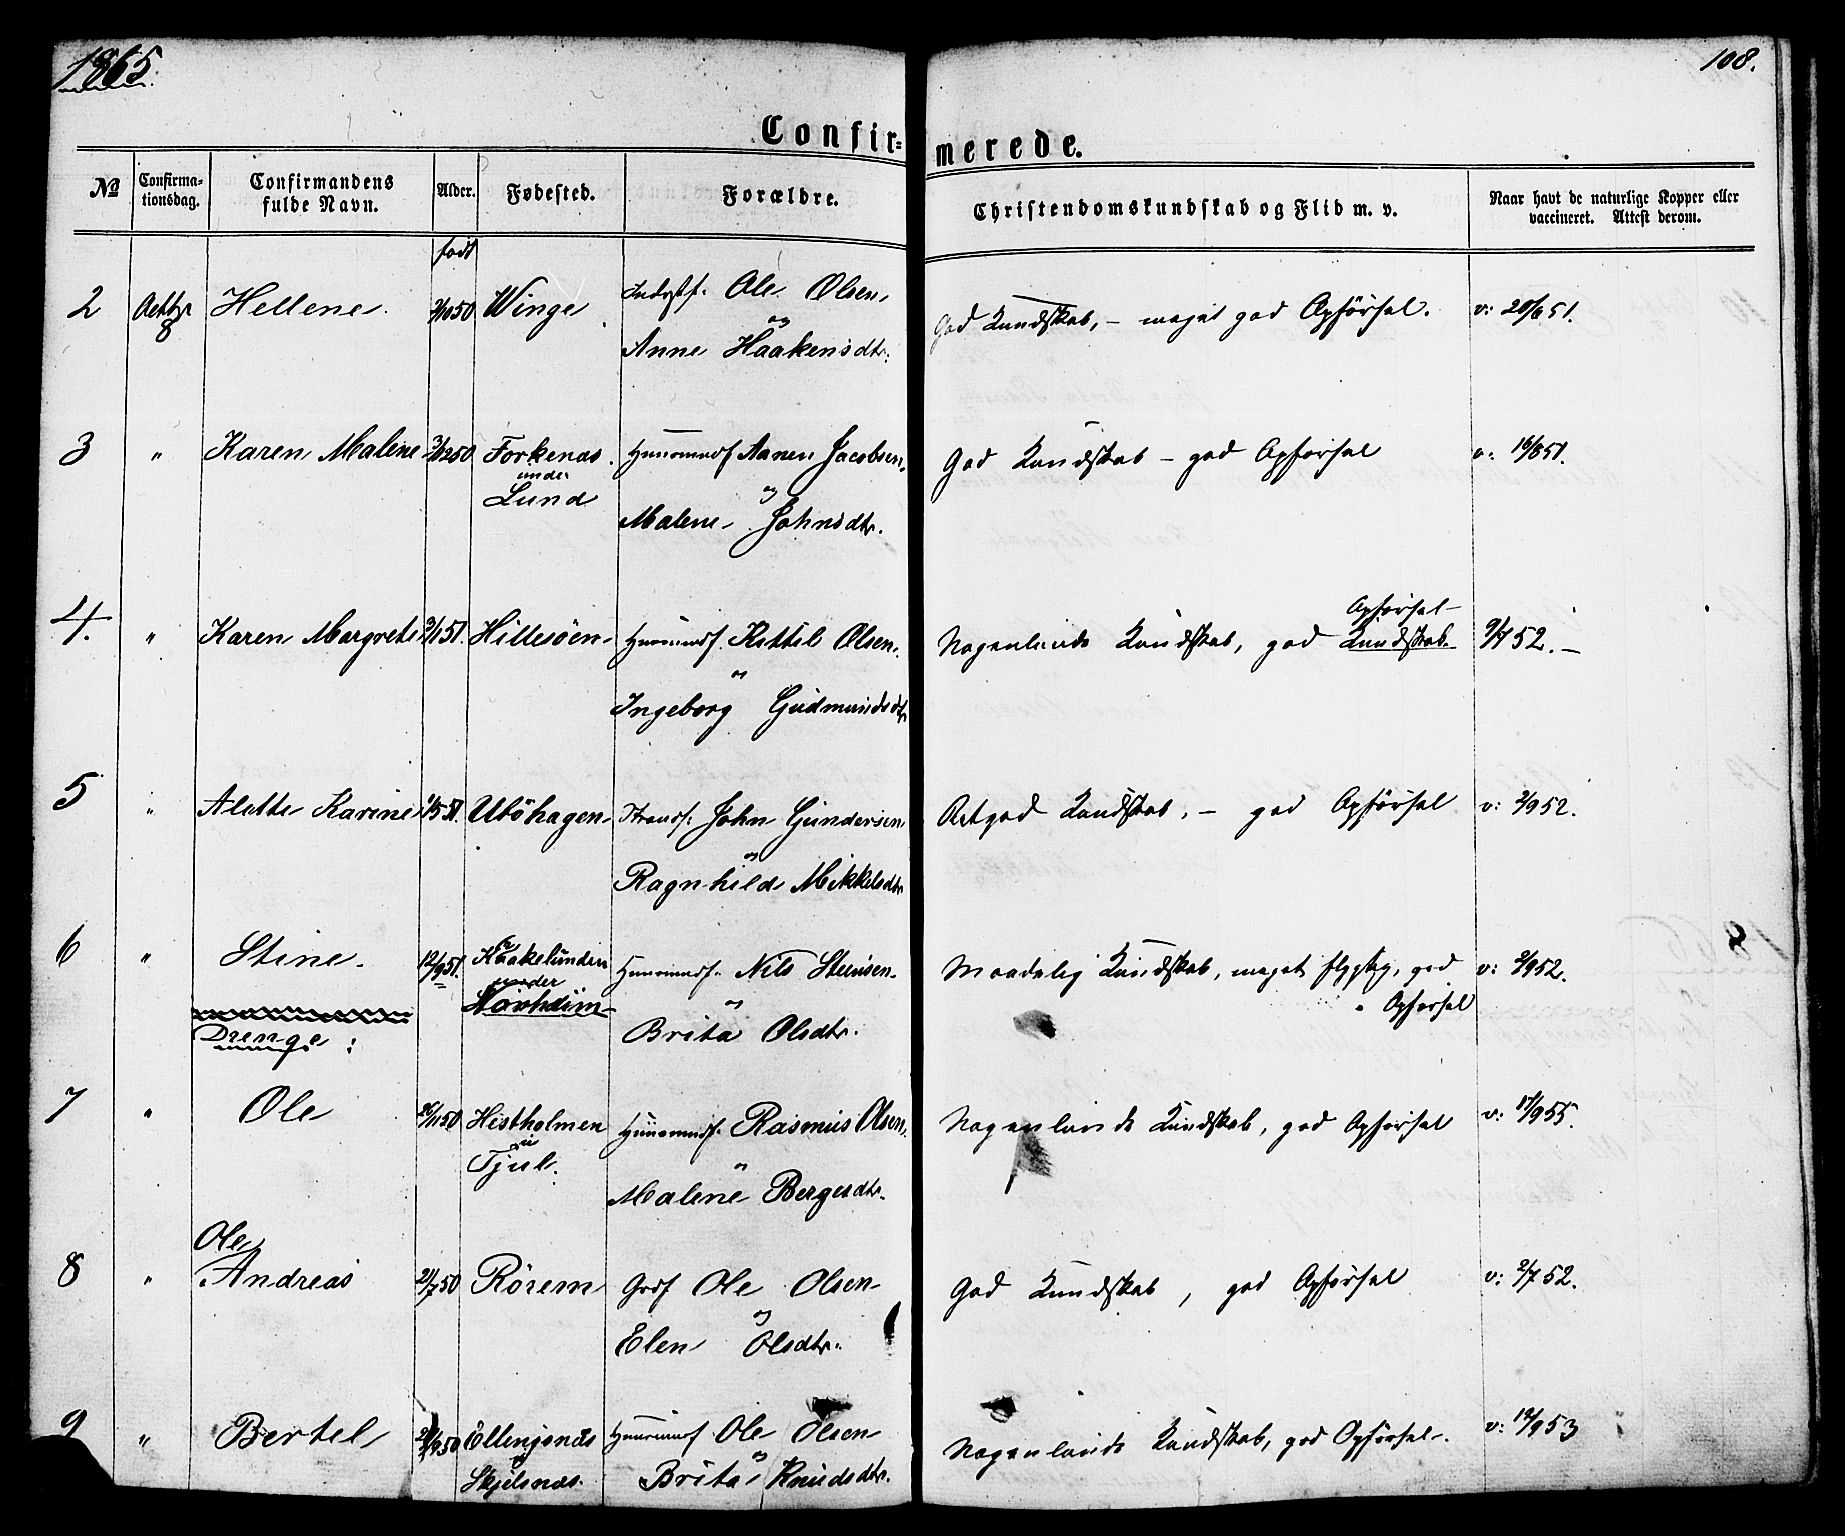 1865.
108.
Confir= merede.
No Confirma- tionsdag. Confirmandens fulde Navn. Alder. Fødested. Forældre. Christendomskundskab og Flid m. v. Naar havt de naturlige Kopper eller vaccineret. Attest derom.
født
2 Octbr 8 Hellene. Winge Ole Olsen
og
Anne Haakensdtr.
God Kundskab, – meget god Opførsel. v: 20/6 51.
3 " Karen Malene 3/12 50 Forkenas. Huusmd Aanen Jacobsen
under
Lund
og
Malene Johnsdtr.
God Kundskab – god Opførsel v: 16/8 51.
4. " Karen Margrete 3/1 51. Hillesöen Huusmd. Kittil Olsen
og
Ingeborg Gudmundsdtr
Opførsel
Nogenlunde Kundskab, god Kundskab. 9/7 52. –
5 " Alette Karine Uböhagen Strands. John Gundersen
og
Ragnhild Mikkelsdtr
Retgod Kundskab, – god Opførsel v: 2/9 52.
6 " Stine 12/9 51. Huusmd. Nils Steensen
under
og
Brita Olsdtr.
Maadelig Kundskab, meget flygtig, god v: 2/9 52.
Opførsel
Drenge:
7 " Ole 26/11 50 Histholmen Huusmd. Rasmus Olsen
i
Tjul.
og
Malene Bergesdtr.
Nogenlunde Kundskab, god Opførsel v: 17/9 55.
Ole
8 " Andreas 21/7 50 Rörem Grdf Ole Olsen
og
Elen Olsdtr.
God Kundskab, god Opførsel v: 2/7 52.
9 " Bertel Huusmd Ole Olsen
Skjelsnas.
og
Brita Knudsdtr.
Nogenlunde Kundskab, god Opførsel. v: 12/9 53